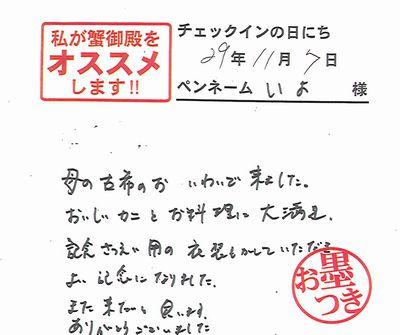 私が蟹御殿を
オススメ
します!!
チェックインの日にち
29年11月7日
ペンネーム いよ 様
母の古希のお いわいで 来ました。
おいしいカニとお料理に大満足
記念さつえい用の衣装もかしていただき
よい記念になりました。
また来たいと思います。
ありがとうございました
お墨つき